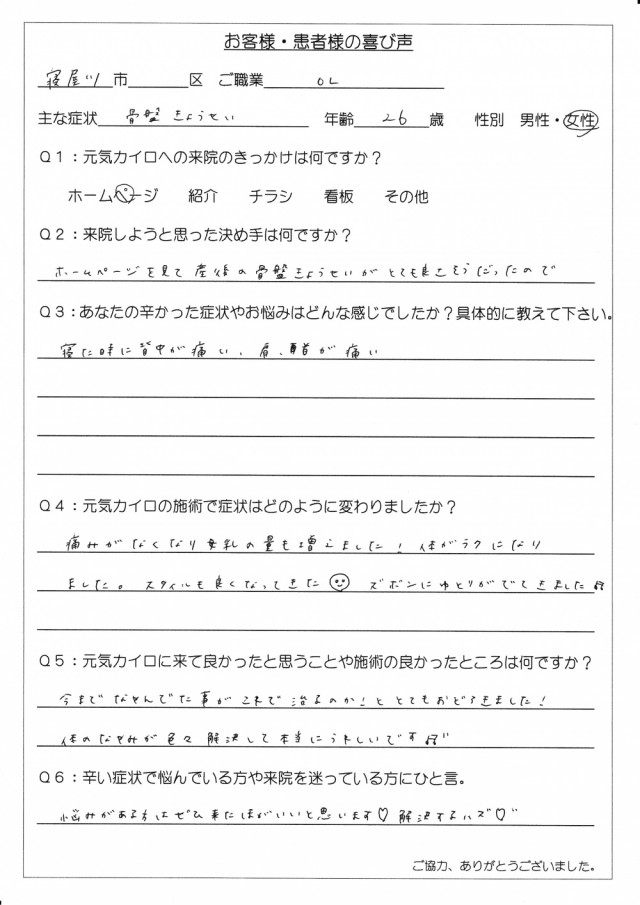 お客様・患者様の喜び声
寝屋川市 区 ご職業 OL
主な症状 骨盤きょうせい 年齢 26 歳 性別 男性・女性
Q1：元気カイロへの来院のきっかけは何ですか？
ホームページ 紹介 チラシ 看板 その他
Q2：来院しようと思った決め手は何ですか？
ホームページを見て産後の骨盤きょうせいがとても良さそうだったので
Q3：あなたの辛かった症状やお悩みはどんな感じでしたか？具体的に教えて下さい。
寝た時に背中が痛い、肩、首が痛い
Q4：元気カイロの施術で症状はどのように変わりましたか？
痛みがなくなり母乳の量も増えました！体がラクになり
ました。スタイルも良くなってきた ズボンにゆとりがでてきました
Q5：元気カイロに来て良かったと思うことや施術の良かったところは何ですか？
今までなやんでた事がこれで治るのか！ととてもおどろきました！
体のなやみが色々解決して本当にうれしいです
Q6：辛い症状で悩んでいる方や来院を迷っている方にひと言。
悩みがある方はぜひ来たほがいいと思います♡解決するハズ♡
ご協力、ありがとうございました。